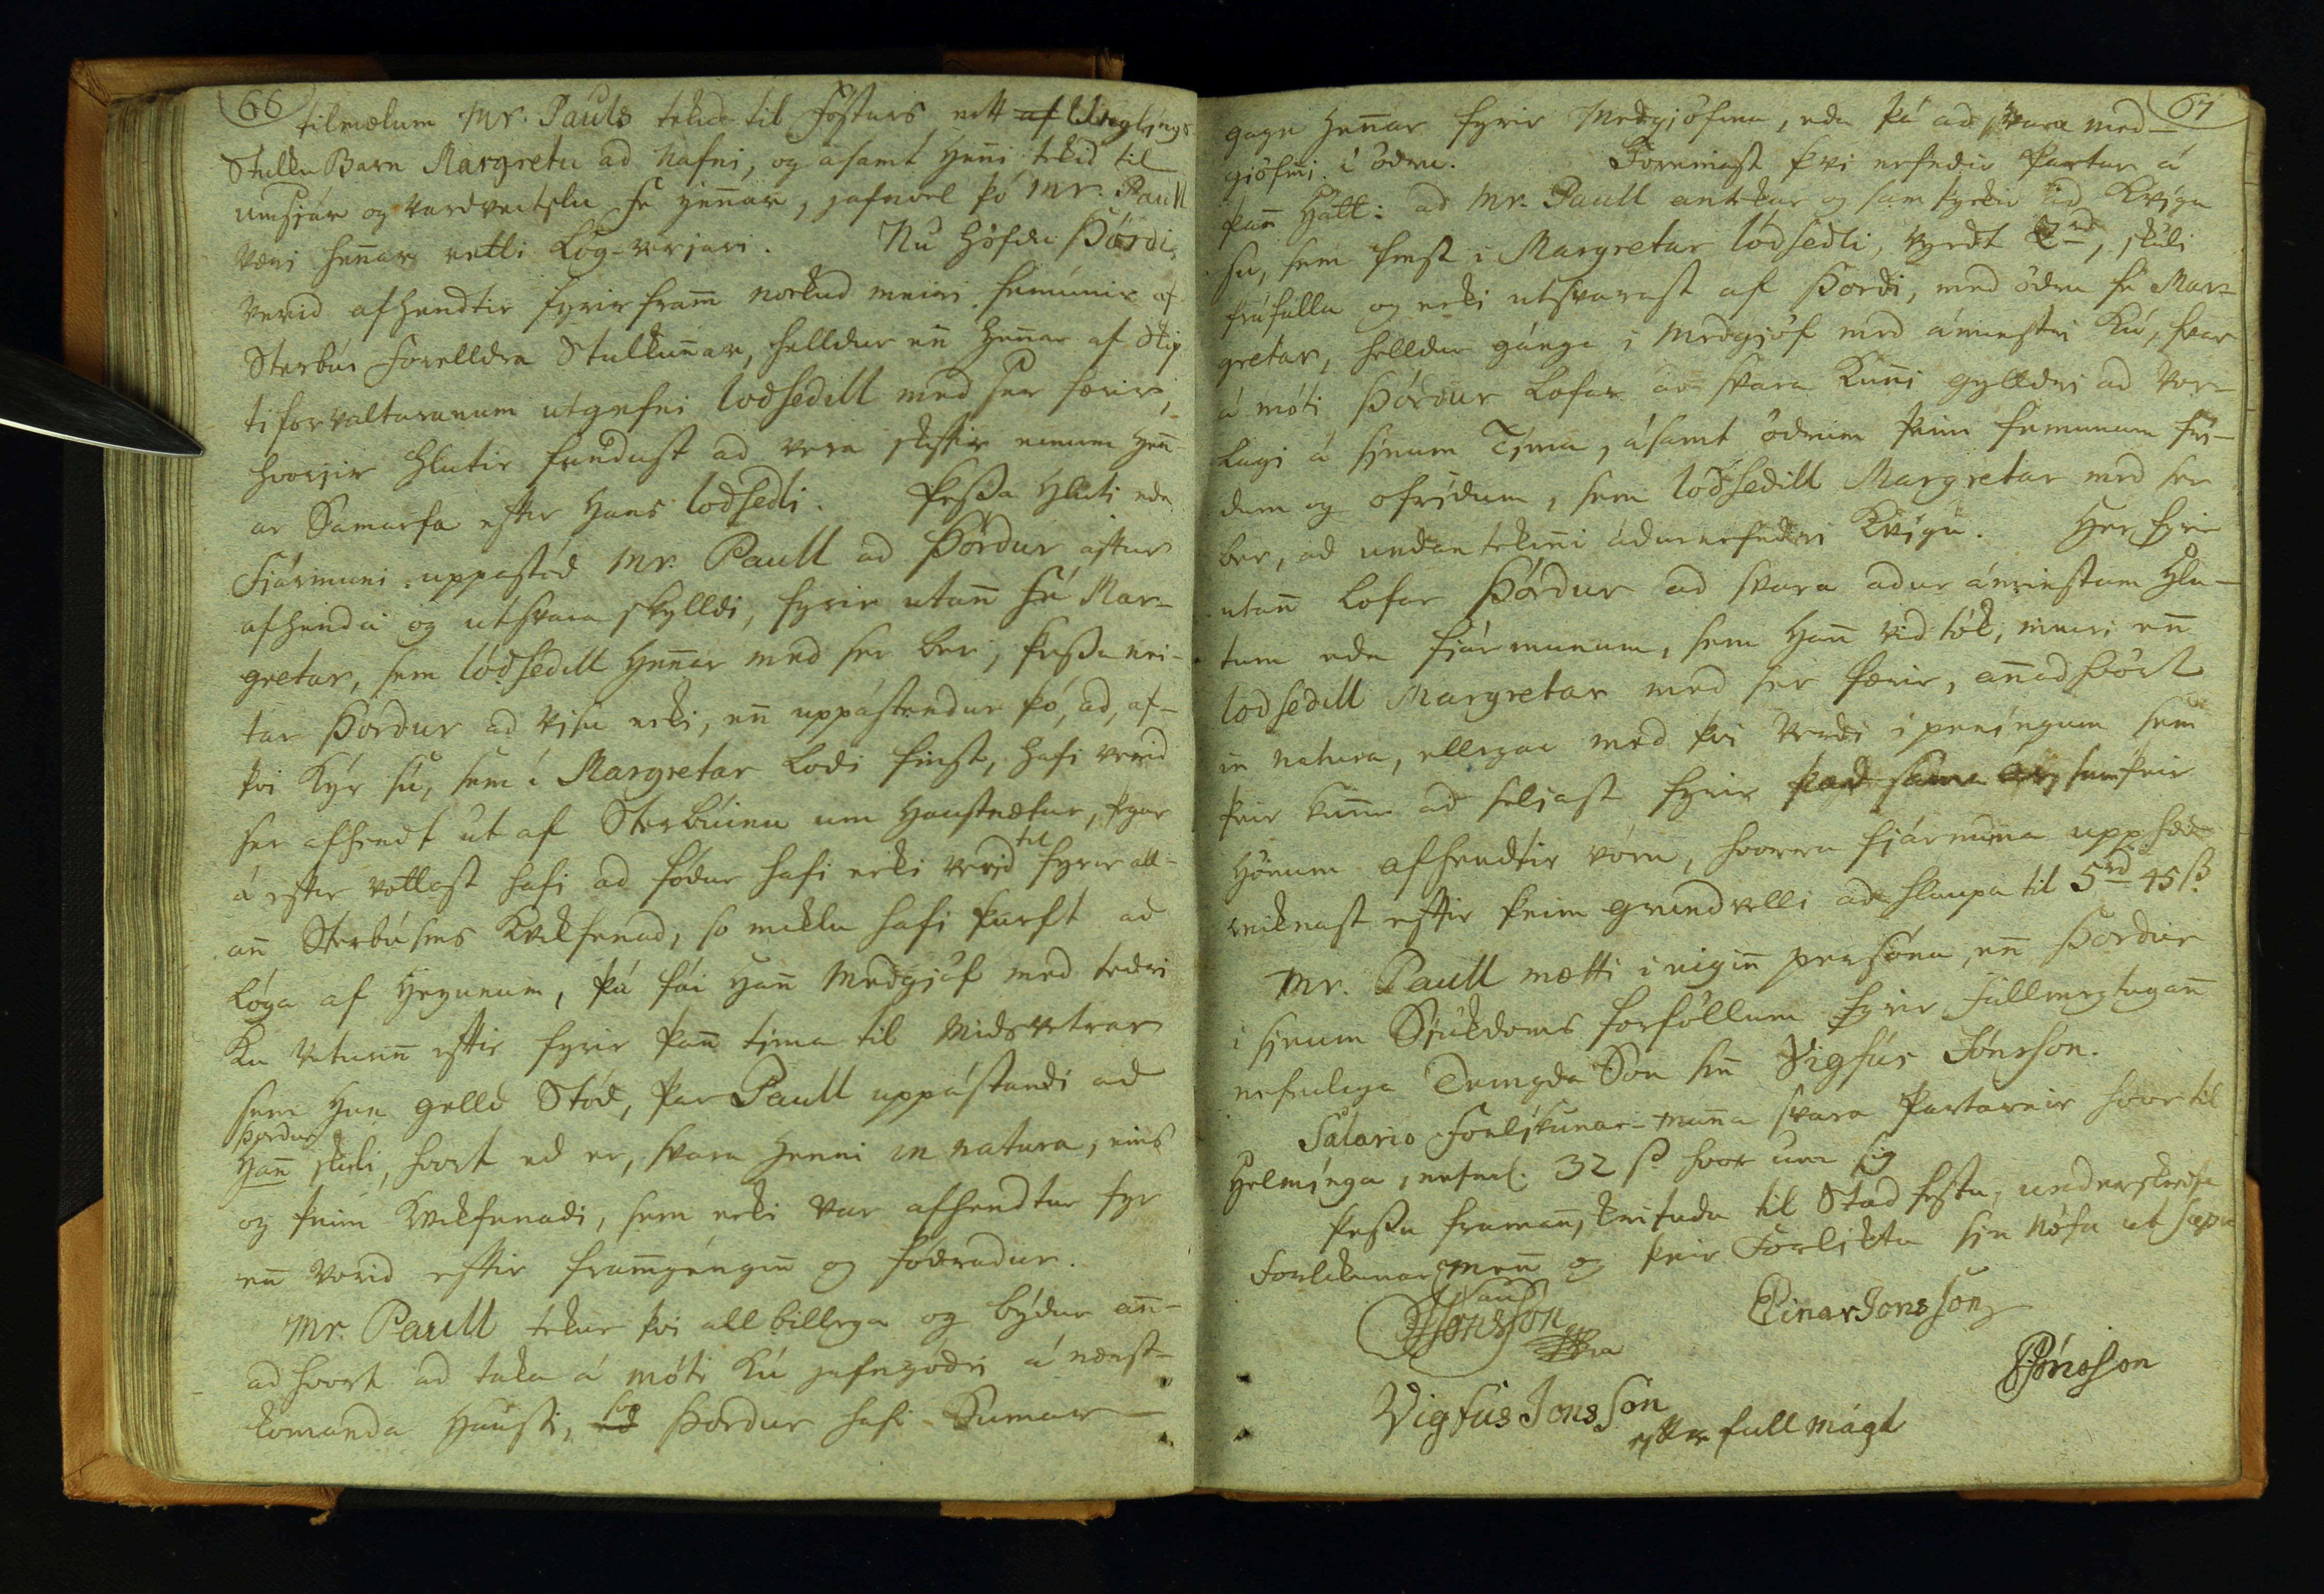 66
tilmælum Mr. Pauls tekid til fósturs eitt af Unglíngs
Stulku Barn Margretu ad Nafni, og ásamt henni tekid til
umsjár og vardveitslu fé hennar, jafnvel þó Mr. Paull
væri hennar retti Lög-verjari. Nu höfdu Þórdi
verid afhendtir fyrirfram nockud meiri fémunir af
Sterbúi Forelldra Stulkunnar, helldur enn hennar af Skip
tiforvaltaranum utgefni lodsedill med ser færir,
hvorjir hlutir fundust ad vera skiftir einum henn
ar Samarfa eftir hans lodsedli. Þessa hluti eda
Fjármuni uppastód Mr. Paull ad Þórdur aftur
afhenda og utsvara skylldi, fyrir utann fé Mar-
gretar, sem lódsedill hennar med ser ber, þessu nei-
tar Þordur ad visu ecki, enn uppástendur þó, ad, af-
þvi Kýr sú, sem i Margretar Lodi finst, hafi verid
ser afhendt út af Sterbúinu um Haustnætur, þegar
á eftir vottast hafi ad fódur hafi ecki verid til fyrir all-
ann Sterbúsins Kvikfenad, so miklu hafi þurft ad
Lóga af Heyunum, þá fái hann Medgjöf med tedri
Ku Veturinn eftir fyrir þann tima til Midsvetrar
sem hun gelld Stód, þar Paull uppástandi ad
Þordur
hann skuli, hvort ed er, svara henni in natura, eins
og þeim Kvikfenadi, sem ecki var afhendtur fyr
enn Vorid eftir framgenginn og fódradur.
Mr. Paull tekur þvi all billega og býdur ann-
ad hvort ad taka á móti Kú jafngódri á næst-
komanda Hausti, so Þordur hafi Sumar-
67
gagn hennar fyrir Medgjöfina, eda þá ad svara med-
gjöfini i ödru. Foreinast þvi nefndir Partar á
þann Hátt: ad Mr. Paull antekur og samþyckir ad Kvíga
su, sem finst i Margretar lódsedli, vyrdt 2rd, skuli
fráfalla og ecki utsvarast af Þordi, med ödru fé Mar-
gretar, helldur gánga i Medgjöf med áminstri Kú, hvar
á móti Þórdur Lofar ad svara Kunni gylldri ad Vor-
lagi á sínum Tíma, ásamt ödrum þeim fémunum frí-
dum og ofrídum, sem lodsedill Margretar med ser
ber, ad undantekinni ádurnefndri Kvígu. Her fyrir
utann Lofar Þórdur ad svara adur áminstum Hlu-
tum eda fjármunum, sem hann vid tók, meiri enn
lodsedill Margretar med ser færir, annadhvört
in natura, ellegar med þvi Verdi i peníngum sem
þeir kunna ad seljast fyrir þad sama sem þeir
Hönum afhendtir vóru, hvorra fjármuna upphæd
reiknast eftir þeim grundvelli ad hlaupa til 5rd 45 ſz
Mr. Paull mætti i eiginn persónu, enn Þordur
i sínum Sjúkdoms forföllum fyrir fullmegtugann
nefnilega Tengda Son sinn Vigfús Jónsson.
Salario Forlíkunar-manna svara Partarnir hvor til
Helmínga, nefnil. 32 ſz hvor um sig
Þessu framann skrifadu til Stadfestu, underskrifa
Forlikunar menn og þeir Forlíktu sín nöfn ut supra
Jonsson
Einar Jons Son
PJónsson
Vigfus Jons Son
eftir fullmagt